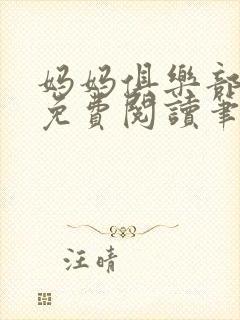 妈妈俱樂部
免費閱讀筆
汪晴